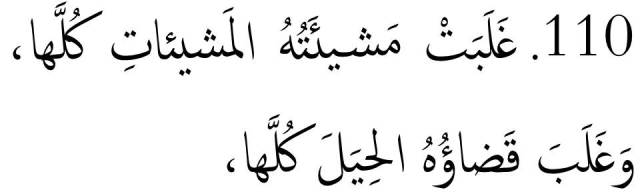 110. غَلَبَتْ مَشيئَتُهُ المَشيئاتِ كُلَّها،
وَغَلَبَ قَضاؤُهُ الحِيَلَ كُلَّها،